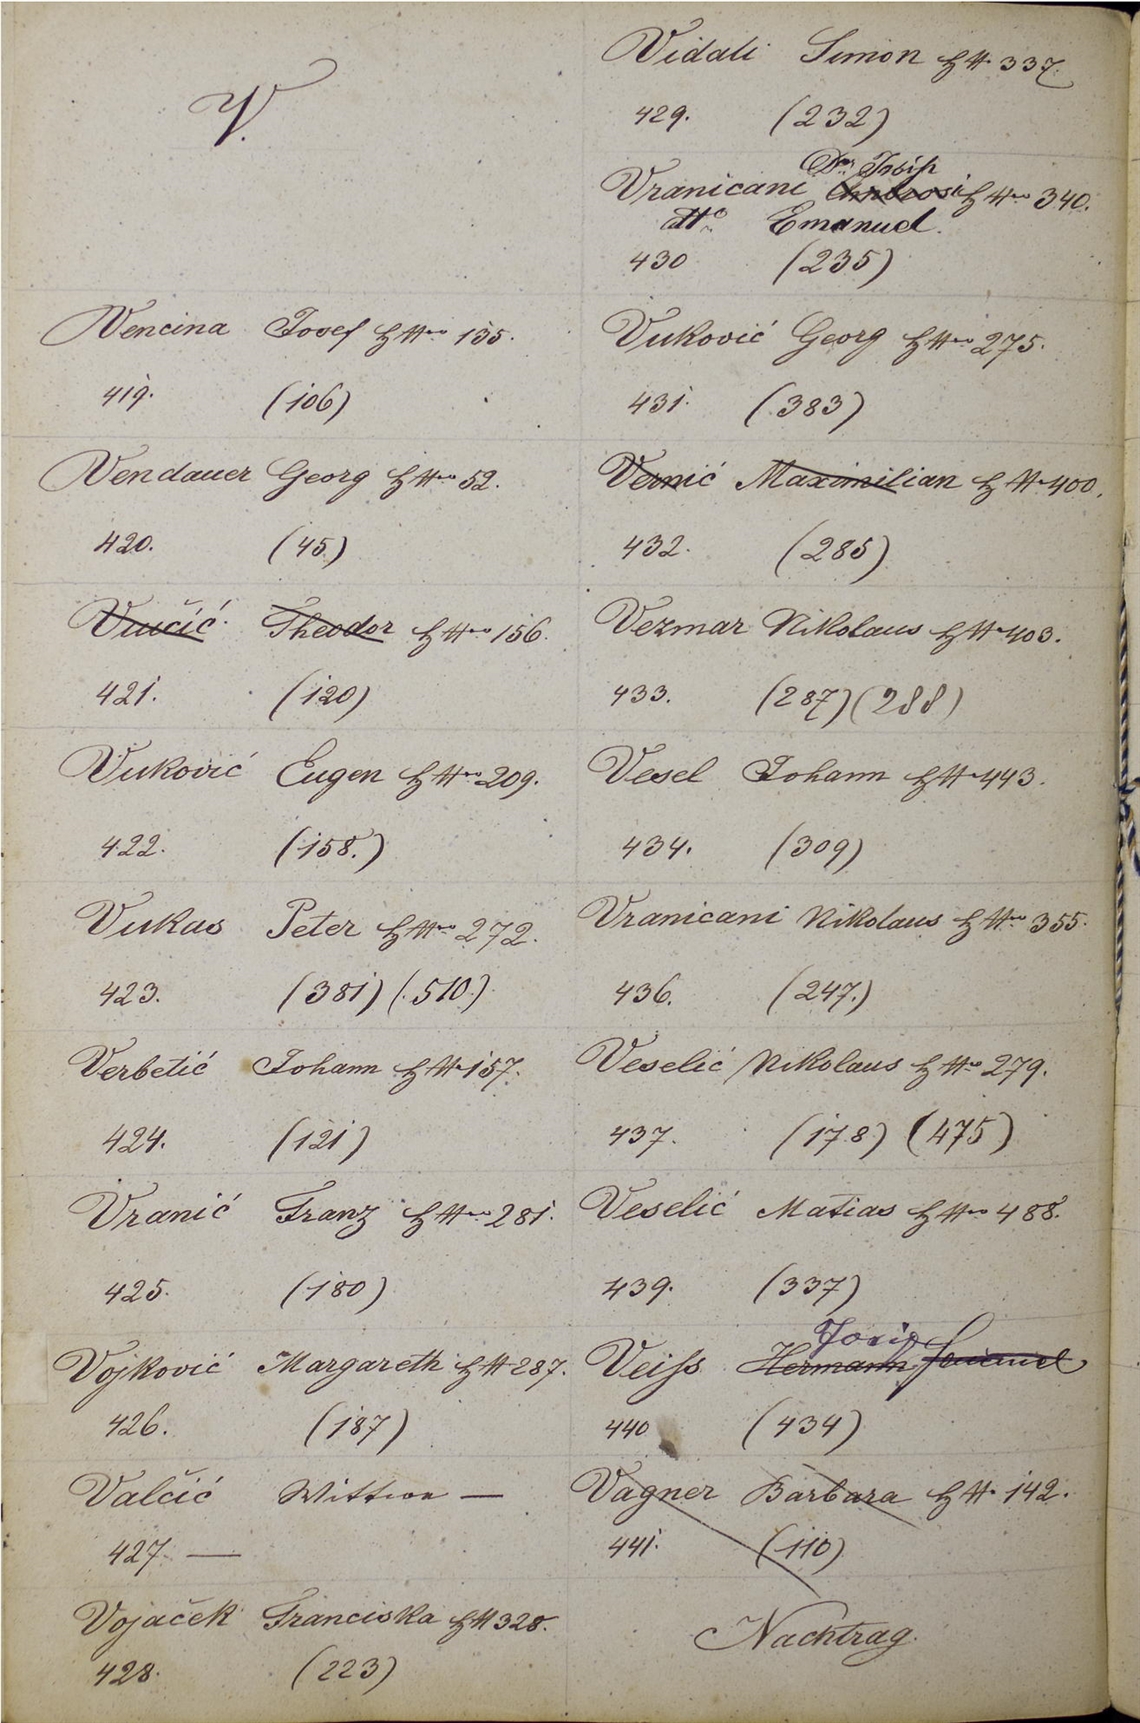 V.
Vencina Josef H№ 135.
419. (106)
Vendauer Georg H№ 52.
420. (45)
Vučić Theodor H№ 156.
421. (120)
Vuković Eugen H№ 209.
422. (158.)
Vukas Peter H№ 272.
423. (381) (510.)
Verbetić Johann H№ 157.
424. (121)
Vranić Franz H№ 281.
425. (180)
Vojković Margareth H№ 287.
426. (187)
Valčić Wittwe —
427. —
Vojaček Franciska H№ 328.
428. (223)
Vidali Simon H№ 337.
429. (232)
Dr. Josip
Vranicani Ambrosi H№ 340.
dtto. Emanuel.
430 (235)
Vuković Georg H№ 275.
431. (383)
Vernić Maximilian H№ 400.
432. (285)
Vezmar Nikolaus H№ 403.
433. (287) (288)
Vesel Johann H№ 443.
434. (309)
Vranicani Nikolaus H№ 355.
436. (247.)
Veselić Nikolaus H№ 279.
437. (178) (475)
Veselić Matias H№ 488.
439. (337)
Josip
Veiſs Hermann
440 (434)
Vagner Barbara H№ 142.
441. (110)
Nachtrag.